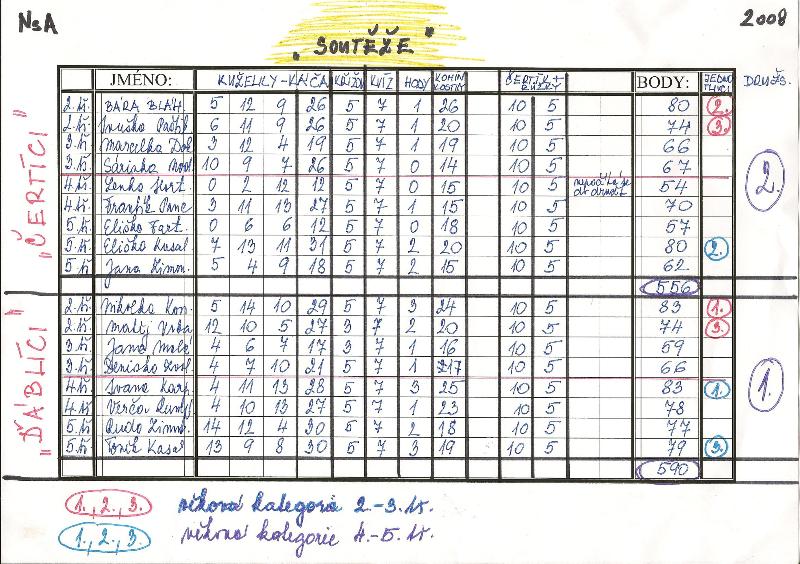 NsA
2008
"SOUTĚŽE"
JMÉNO: KUŽELKY - KÁČA KŘÍŽ. KVÍZ HODY KOMÍN KOSTKY ČERTÍK + RŮŽKY BODY: JEDNOTLIVCI DRUŽS.
"ČERTÍCI"
2.tř. BÁRA BLAH. 5 12 9 26 5 7 1 26 10 5 80 2.
2.tř. 6 11 9 26 5 7 1 20 10 5 74 3.
3.tř. Marcelka Dol 3 12 4 19 5 7 1 19 10 5 66
3.tř. Sárinka 10 9 7 26 5 7 0 14 10 5 67
4.tř. Lenka 0 2 12 12 5 7 0 15 10 5 54
4.tř. Frantík 3 11 13 27 5 7 1 15 10 5 70
5.tř. Eliška Fart. 0 6 6 12 5 7 0 18 10 5 57
5.tř. Eliška Kasal 7 13 11 31 5 7 2 20 10 5 80 2.
5.tř. Jana Zimm. 5 4 9 18 5 7 2 15 10 5 62
556
2.
"ĎÁBLÍCI"
2.tř. Nikolka Kon. 5 14 10 29 5 7 3 24 10 5 83 1.
2.tř. Matěj Vrba 12 10 5 27 3 7 2 20 10 5 74 3.
3.tř. Jana Malá 4 6 7 17 3 7 1 16 10 5 59
3.tř. Deniska 4 7 10 21 5 7 1 17 10 5 66
4.tř. Ivana Karp. 4 11 13 28 5 7 3 25 10 5 83 1.
4.tř. Verča 4 10 13 27 5 7 1 23 10 5 78
5.tř. Ruda Zimm. 14 12 4 30 5 7 2 18 10 5 77
5.tř. Toník Kasal 13 9 8 30 5 7 3 19 10 5 79 3.
590
1.
1., 2., 3. věková kategorie 2.-3. tř.
1., 2., 3. věková kategorie 4.-5. tř.